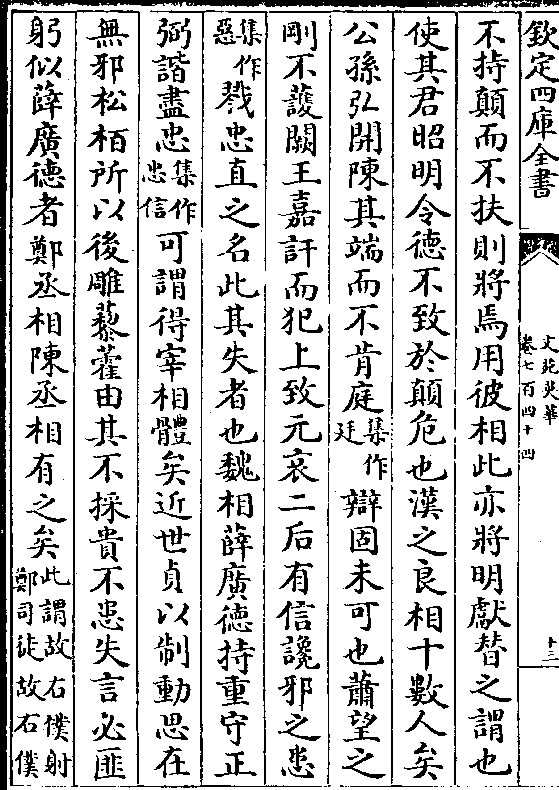 欽定四庫全書
文苑英華
卷七百四十四
十三
不持顛而不扶則將焉用彼相此亦將明獻替之謂也
使其君昭明令德不致於顛危也漢之良相十數人矣
公孫弘開陳其端而不肯庭集作廷辯固未可也蕭望之
剛不䕶闕王嘉訐而犯上致元哀二后有信讒邪之患
集作惡戮忠直之名此其失者也魏相薛廣德持重守正
弼諧盡忠集作忠信可謂得宰相體矣近世貞以制動思在
無邪松栢所以後雕藜藿由其不採貴不患失言必匪
躬似薛廣德者鄭丞相陳丞相有之矣此謂故右僕射鄭司徒故右僕